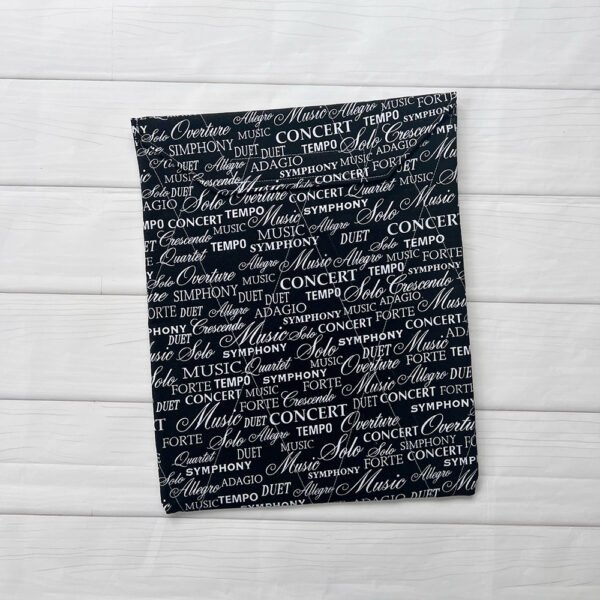 Allegro Music Allegro MUSIC FORTE
Solo Overture MUSIC CONCERT TEMPO Solo Crescendo
DUET Allegro DUET ADAGIO SYMPHONY MUSIC FORTE
Crescendo Music CONCERT Quartet
MUSIC Solo Overture Music SYMPHONY Solo Music
TEMPO CONCERT TEMPO MUSIC DUET Solo CONCERT
Crescendo TEMPO SYMPHONY
Quartet Allegro Music Allegro MUSIC FORTE
Music Overture MUSIC CONCERT TEMPO Solo Crescendo
SIMPHONY DUET DUET ADAGIO Music
Allegro ADAGIO SYMPHONY MUSIC FORTE ADAGIO
SYMPHONY Crescendo Music CONCERT CONCERT
Solo Solo SYMPHONY Solo DUET Music
MUSIC Quartet MUSIC FORTE
FORTE TEMPO SYMPHONY FORTE Music Allegro MUSIC
DUET MUSIC Crescendo TEMPO SYMPHONY
Music DUET CONCERT DUET Overture
FORTE Solo Allegro TEMPO Solo Crescendo SIMPHONY
Quartet MUSIC Music FORTE CONCERT
SYMPHONY SYMPHONY Music ADAGIO
Solo Allegro ADAGIO DUET Allegro Music
MUSIC TEMPO